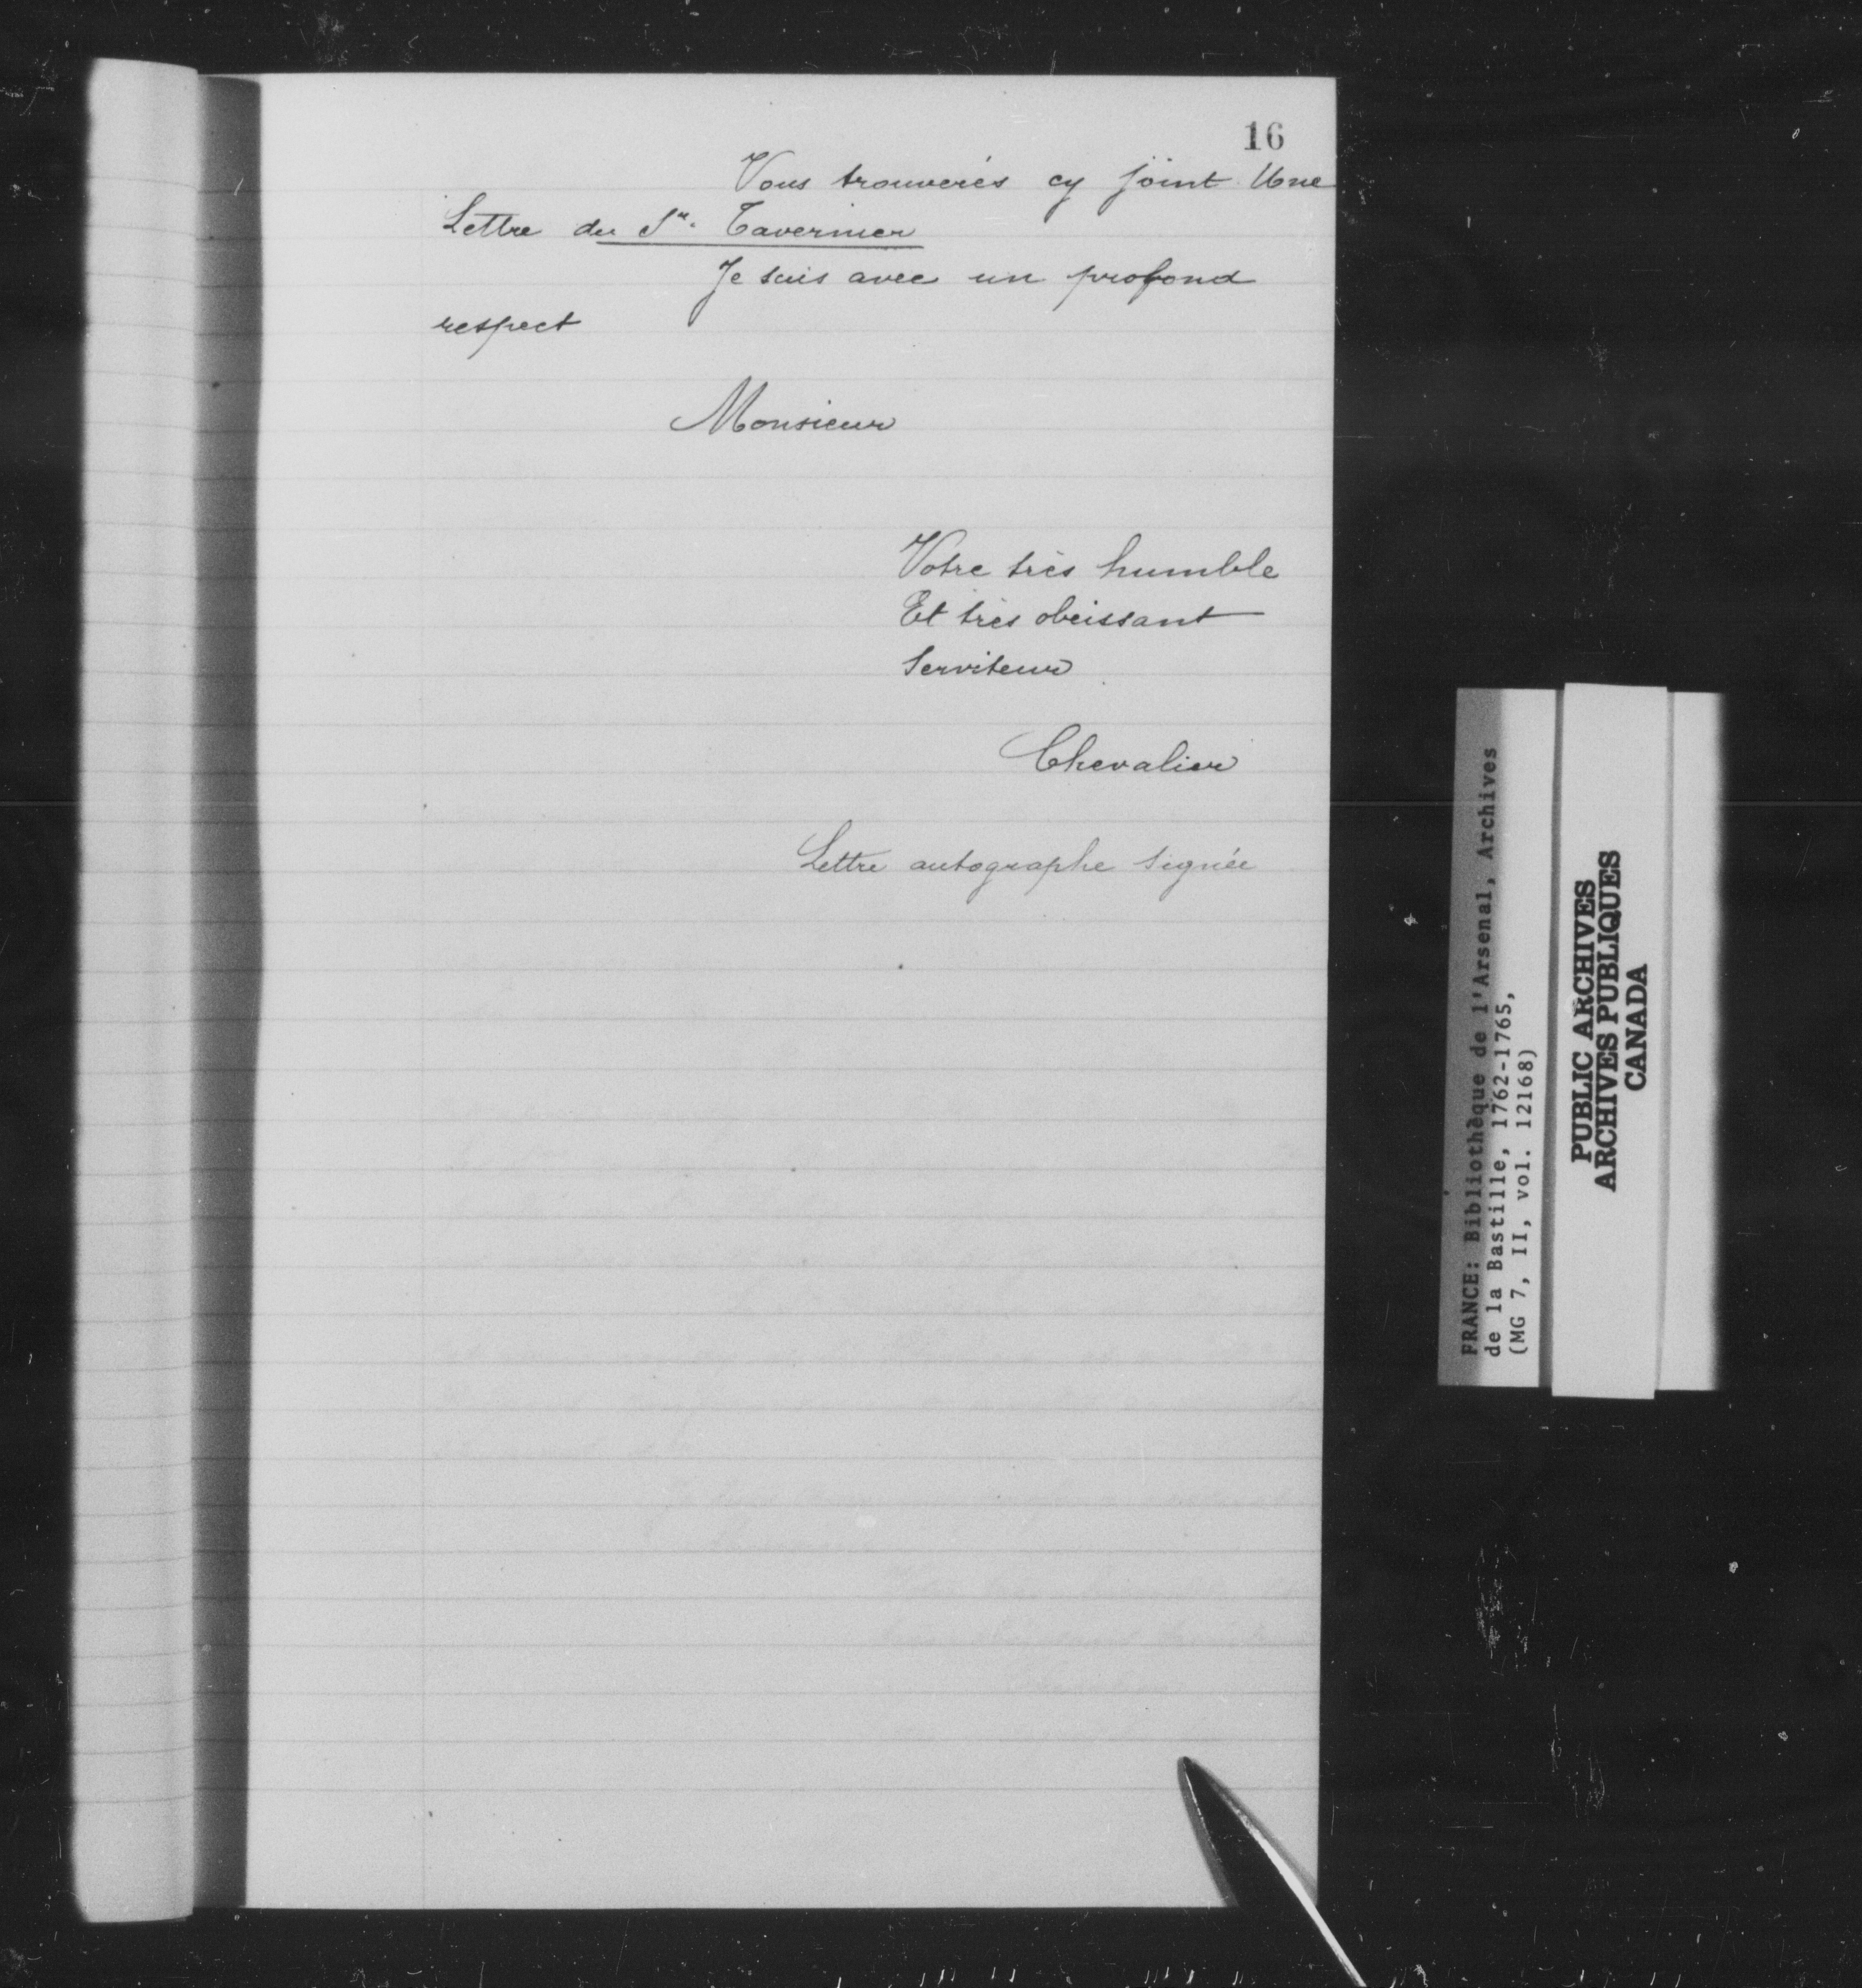 16
Vous trouverés cy joint Une
Lettre du Sr. Tavernier
Je suis avec un profond
respect
Monsieur
Votre très humble
Et très obeissant
Serviteur
Chevalier
Lettre autographe signée
FRANCE: Bibliothèque de l'Arsenal, Archives
de la Bastille, 1762-1765,
(MG 7, II, vol. 12168)
PUBLIC ARCHIVES
ARCHIVES PUBLIQUES
CANADA